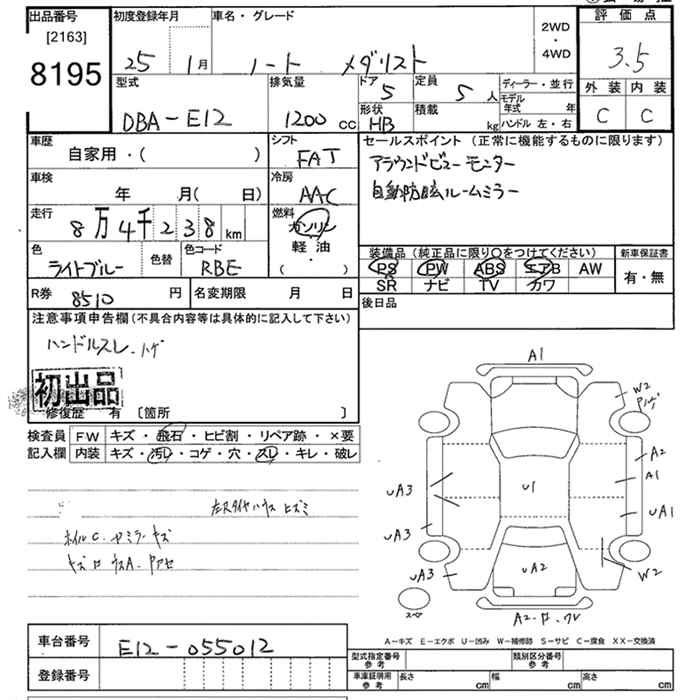 出品番号
[2163]
8195
初度登録年月
25 1月
車名・グレード
ノート メダリスト
2WD
・
4WD
評価点
3.5
外装 内装
C C
型式
DBA-E12
排気量
1200 cc
ドア
5
定員
5 人
形状
HB
積載
kg
ディーラー・並行
モデル年式 年
ハンドル 左・右
車歴
自家用・( )
シフト
FAT
車検
年 月( 日)
冷房
AAC
走行
8万4千238 km
燃料
ガソリン
軽油
・
( )
色
ライトブルー
色替
色コード
RBE
R券 8510 円
名変期限 月 日
セールスポイント(正常に機能するものに限ります)
アラウンドビューモニター
自動防眩ルームミラー
装備品(純正品に限り〇をつけてください)
新車保証書
PS PW ABS エアB AW
SR ナビ TV カワ
有・無
後日品
注意事項申告欄(不具合内容等は具体的に記入して下さい)
ハンドルスレ、ハゲ
初出品
修復歴 有 〔箇所 〕
検査員
記入欄
FW キズ・飛石・ヒビ割・リペア跡・×要
内装 キズ・汚レ・コゲ・穴・スレ・キレ・破レ
A1
W2
A2
A1
UA1
W2
UA3
UA3
UA3
U1
UA2
スペ
A-キズ E-エクボ U-凹み W-補修跡 S-サビ C-腐食 XX-交換済
車台番号 E12-055012
登録番号
型式指定番号
参考
類別区分番号
参考
車庫証明用
参考
長さ cm 幅 cm 高さ cm